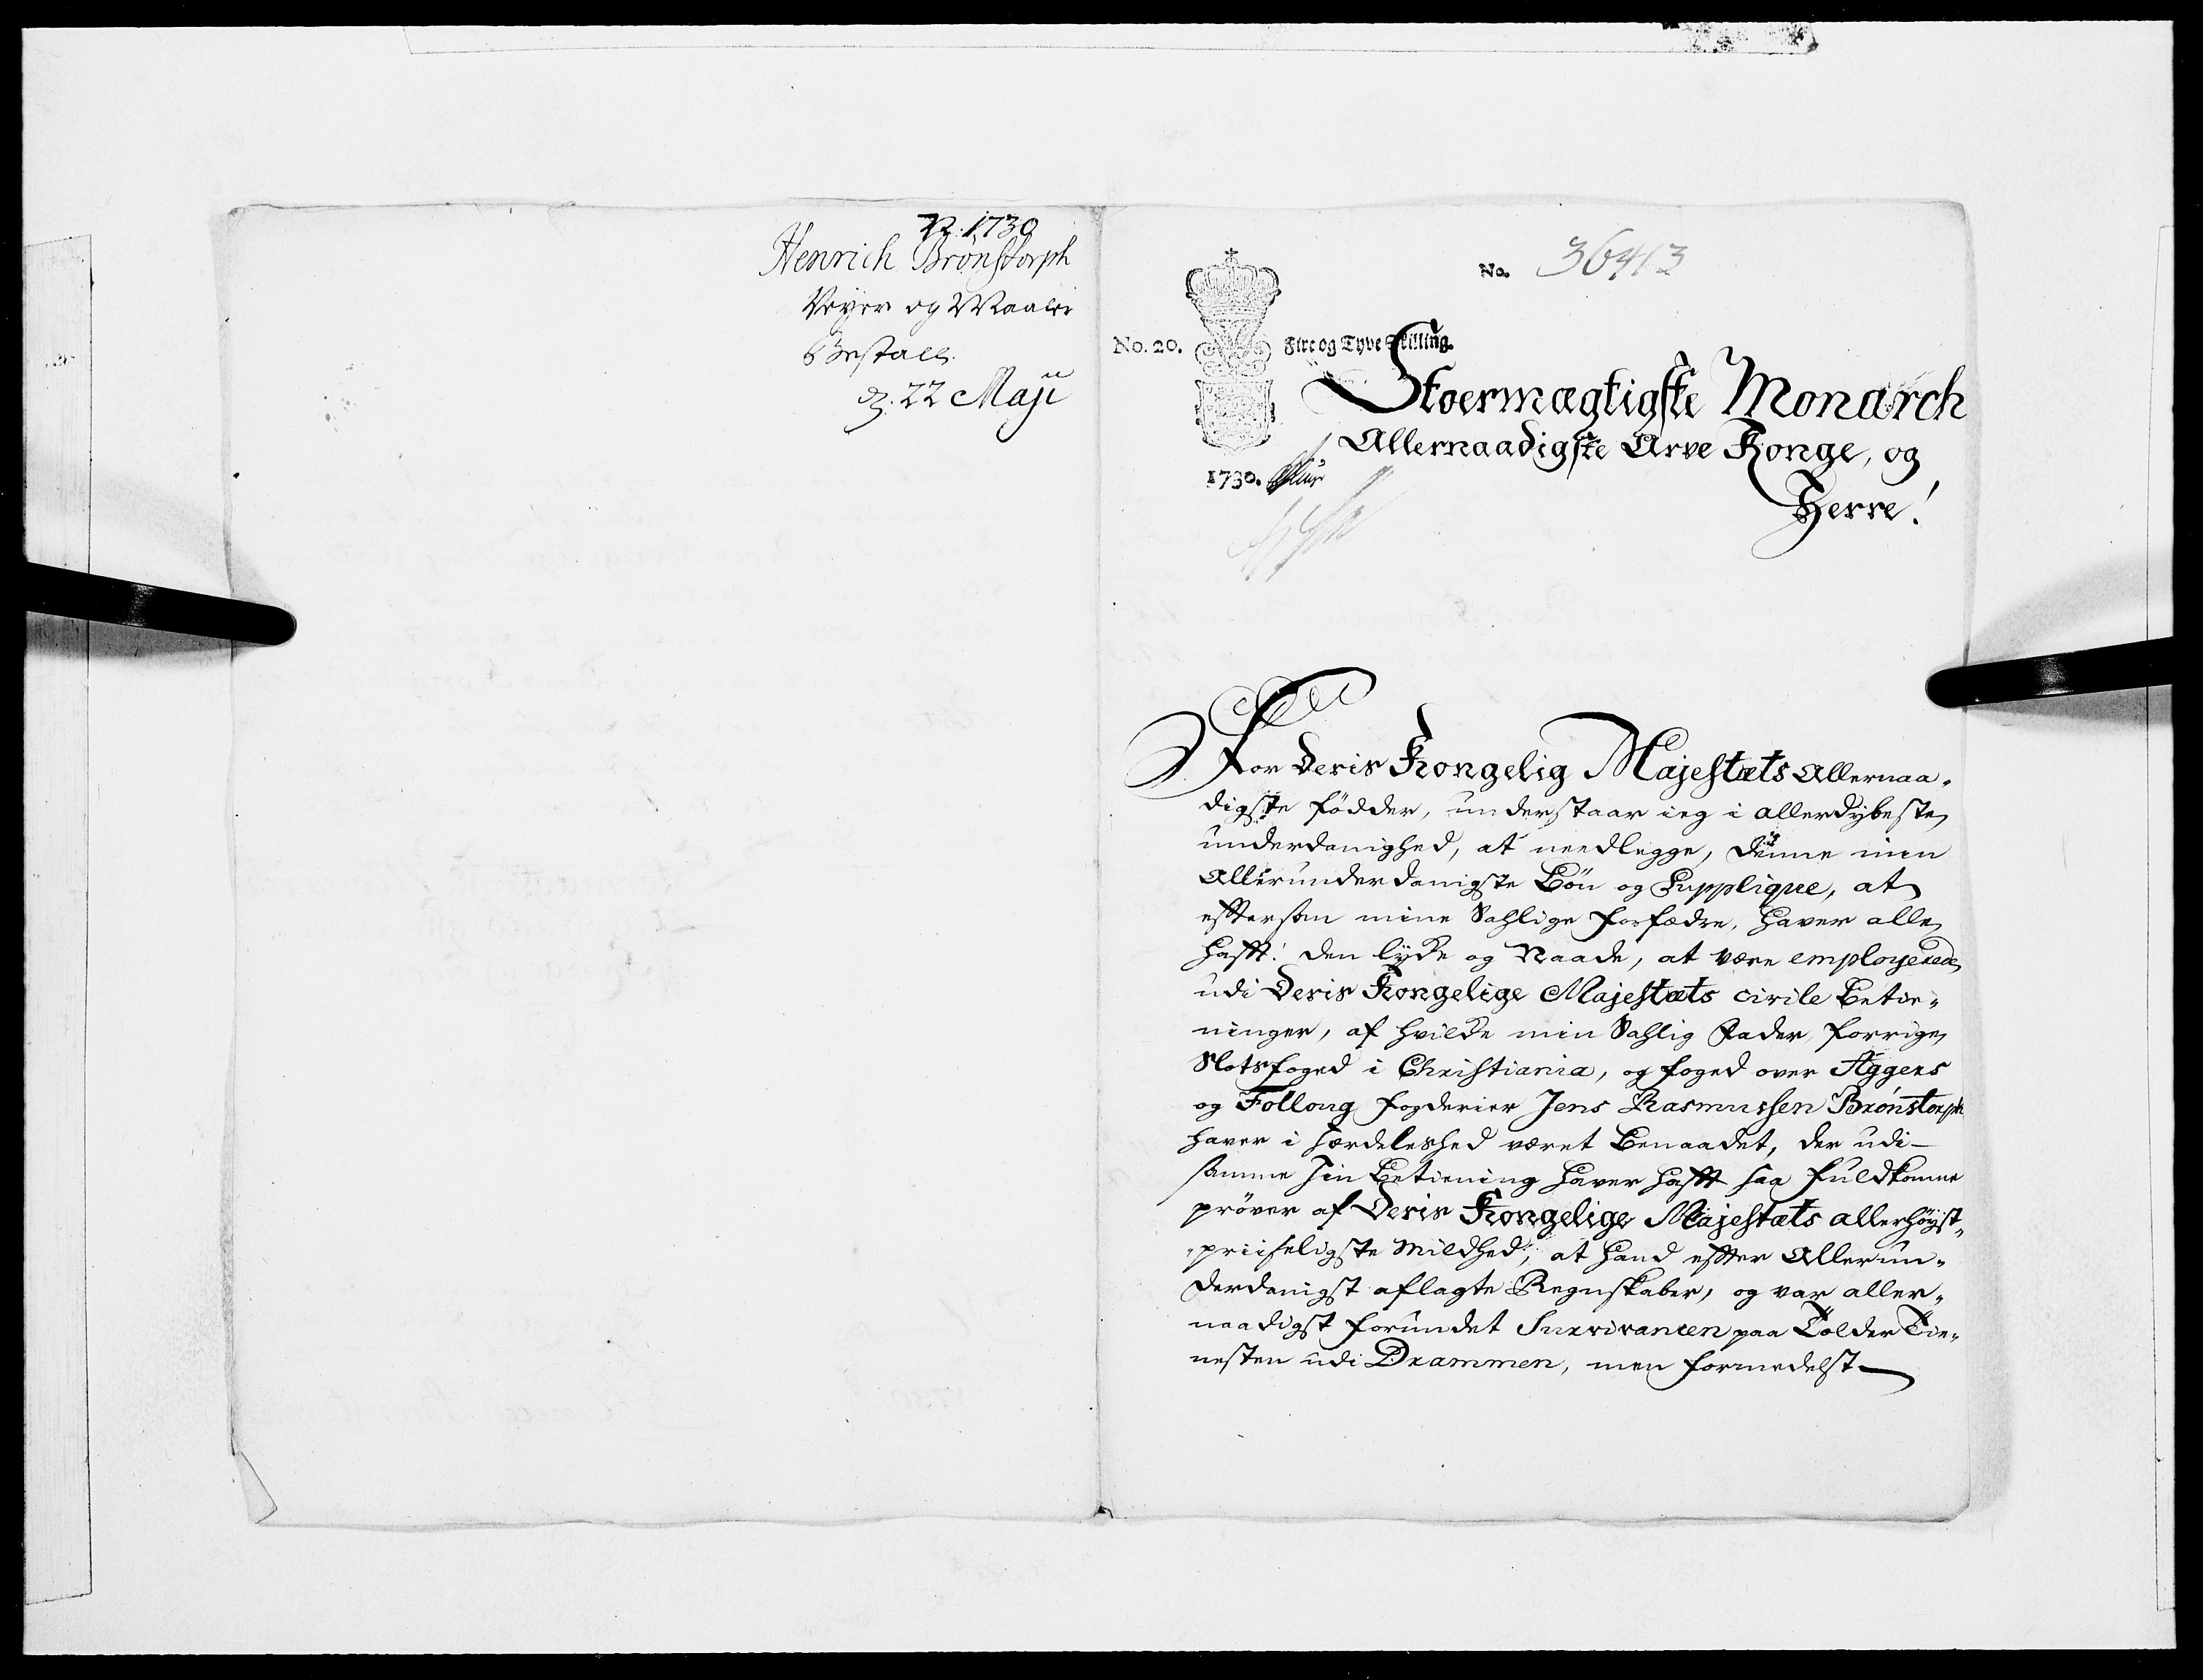 N. 1730
Henrich Brönstorph
Veyer og Maaler
Bestall.
d. 22 Maji
No. 36413
No. 20. Fire og Tyve Skilling.
1730.
Stoermægtigste Monarch
Allernaadigste Arve Konge, og
Herre!
For Deris Kongelig Majestæts Allernaa-
digste fødder, understaar ieg i allerdybeste
underdanighed, at needlegge, denne min
Allerunderdanigste Bøn og Supplique, at
effterson mine Sahlige forfædre, haver alle
hafft den lycke og Naade, at være employerede
udi Deris Kongelige Majestæts civile Betie-
ninger, af hvilcke min Sahlig Fader forrige
Slotsfoged i Christiania, og foged over Aggers
og Folloug fogderier Jens Rasmussen Brönstorph
haver i særdeleshed været Benaadet, der udi
samme sin Betiening haver hafft saa fuldkomne
prøver af Deris Kongelige Majestæts allerhøyst-
priiseligste Mildhed, at hand effter Allerun-
derdanigst aflagte Regnskaber, og var aller-
naadigst forundet Survivancen paa Tolder Tie-
nesten udi Drammen, men formedelst